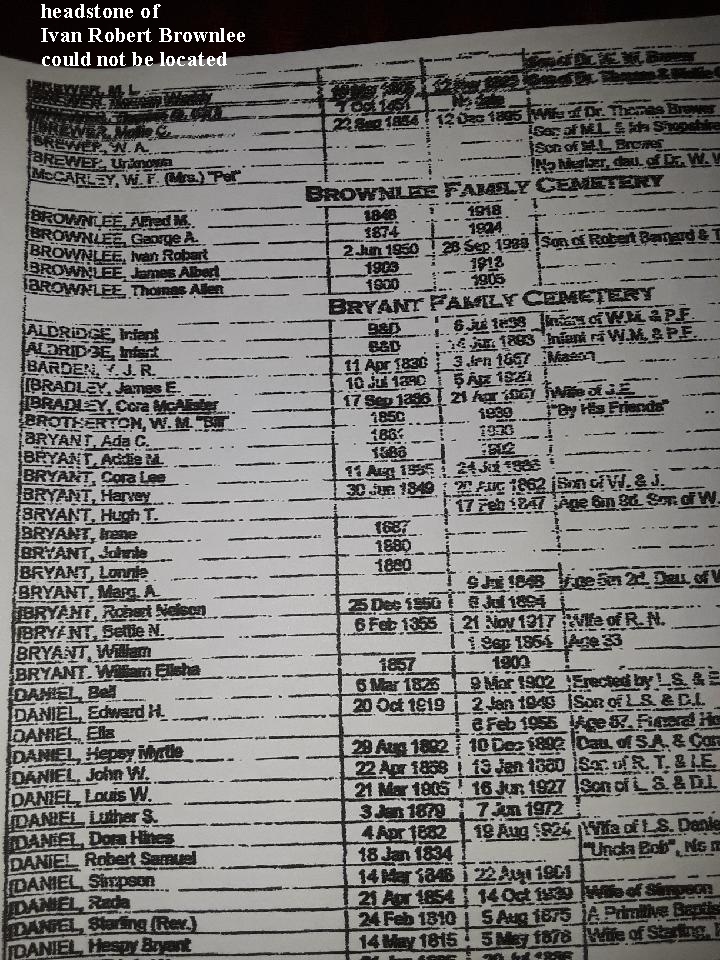 headstone of
Ivan Robert Brownlee
could not be located
Son of Dr. W. W. Brewer
BREWER, M. L.
BREWER, Mollie C. 22 Sep 1854 12 Dec 1895 Wife of Dr. Thomas Brewer
BREWER, W. A. Son of M.L. & Ida
BREWER, Unknown Son of M.L. Brewer
McCARLEY, W. F. (Mrs.) "Pet" No Marker, dau. of Dr. W. W
BROWNLEE FAMILY CEMETERY
BROWNLEE, Alfred M. 1848 1918
BROWNLEE, George A. 1874 1924
BROWNLEE, Ivan Robert 2 Jun 1950 28 Sep Son of Robert Bernard & T
BROWNLEE, James Albert 1903
BROWNLEE, Thomas Allen 1900 1905
BRYANT FAMILY CEMETERY
ALDRIDGE, Infant B&D 6 Jul Infant of W.M. & P.F.
ALDRIDGE, Infant B&D Jun 1893 Infant of W.M. & P.F.
BARDEN, J. R. 11 Apr 1830 3 Jan 1857 Mason
BRADLEY, James E. 10 Jul 5 Apr
BRADLEY, Cora McAlister 17 Sep 1886 21 Apr Wife of J.E.
BROTHERTON, W. M. "Bill" 1850 1939 "By His Friends"
BRYANT, Ada C.
BRYANT, Addie M.
BRYANT, Cora Lee 11 Aug 24 Jul
BRYANT, Harvey 30 Jun 1849 Aug 1862 Son of W. & J.
BRYANT, Hugh T. 17 Feb 1847 Age 6m 8d. Son of W.
BRYANT, Irene 1887
BRYANT, Johnie 1880
BRYANT, Lonnie 1880
BRYANT, Marg. A. 9 Jul 1848 Age 5m 2d. Dau. of W
BRYANT, Robert Nelson 25 Dec 1850 6 Jul 1894
BRYANT, Bettie N. 6 Feb 1855 21 Nov 1917 Wife of R. N.
BRYANT, William 1 Sep 1854 Age 33
BRYANT, William Elisha 1857 1900
DANIEL, Bell 6 Mar 1826 9 Mar 1902 Erected by L.S. & E
DANIEL, Edward H. 20 Oct 1919 2 Jan 1940 Son of L.S. & D.I.
DANIEL, Ella 6 Feb 1955 Age 87. Funeral Ho
DANIEL, Hepsy Myrtle 29 Aug 1892 10 Dec 1892 Dau. of S.A. & Cor
DANIEL, John W. 22 Apr 1858 13 Jan 1880 Son of R. T. & I.E.
DANIEL, Louis W. 21 Mar 1905 16 Jun 1927 Son of L.S. & D.I.
DANIEL, Luther S. 3 Jan 1879 7 Jun 1972
DANIEL, Dora Hines 4 Apr 1882 19 Aug 1924 Wife of L.S. Danie
DANIEL, Robert Samuel 18 Jan 1834 "Uncle Bob", No m
DANIEL, Simpson 14 Mar 1846 22 Aug 1901
DANIEL, Rada 21 Apr 1854 14 Oct 1939 Wife of Simpson
DANIEL, Starling (Rev.) 24 Feb 1810 5 Aug 1875 A Primitive Baptis
DANIEL, Hespy Bryant 14 May 1815 5 May 1876 Wife of Starling,